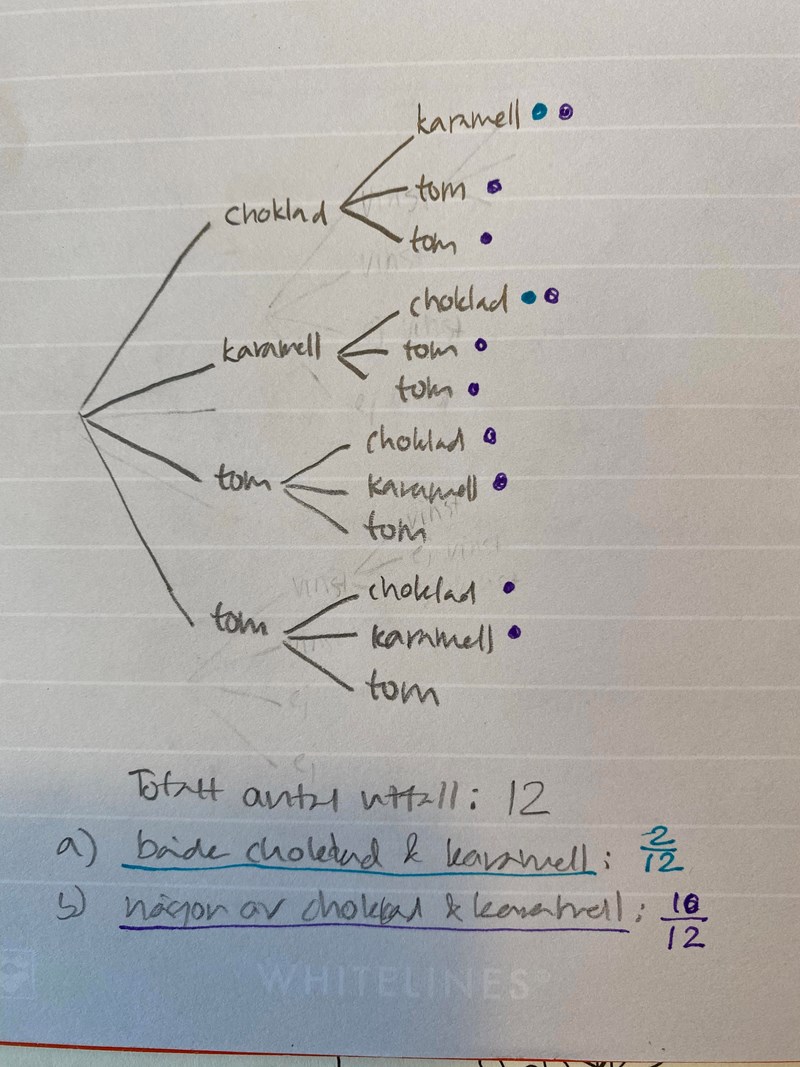 karamell
tom
choklad
tom
choklad
karamell
tom
tom
choklad
tom
karamell
tom
choklad
tom
karamell
tom
Totalt antal utfall: 12
a) både choklad & karamell: 2/12
b) någon av choklad & karamell: 10/12
WHITELINES®